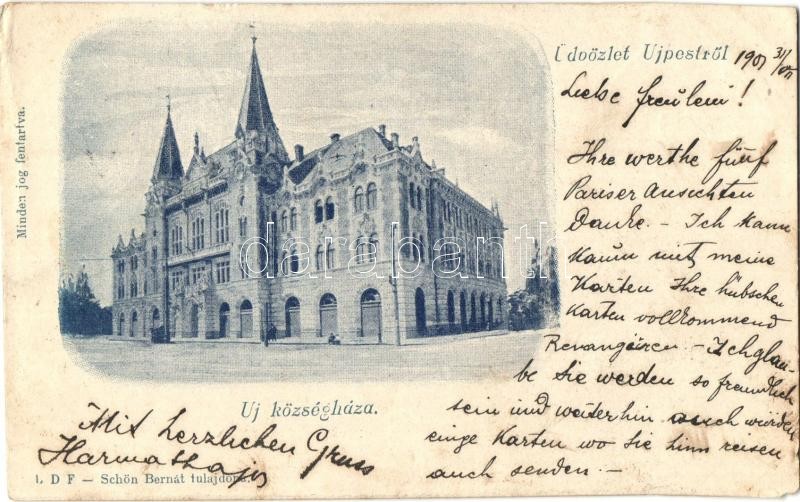 Üdvözlet Ujpestről 1901 31/VII
Liebe Freuleni!
Ihre werthe fünf
Pariser Ansichten
Danke. - Ich kann
kaum mit meine
Karten Ihre hübschen
Karten vollkommend
Revangiren - Ich glau-
be Sie werden so freundlich
sein und weiterhin auch würden
einge Karten wo Sie hinn reisen
auch senden. -
Minden jog fentartva.
darabanth
Uj községháza.
Mit herzlichen Gruss
Harmathajos
D F - Schön Bernát tulajdona.